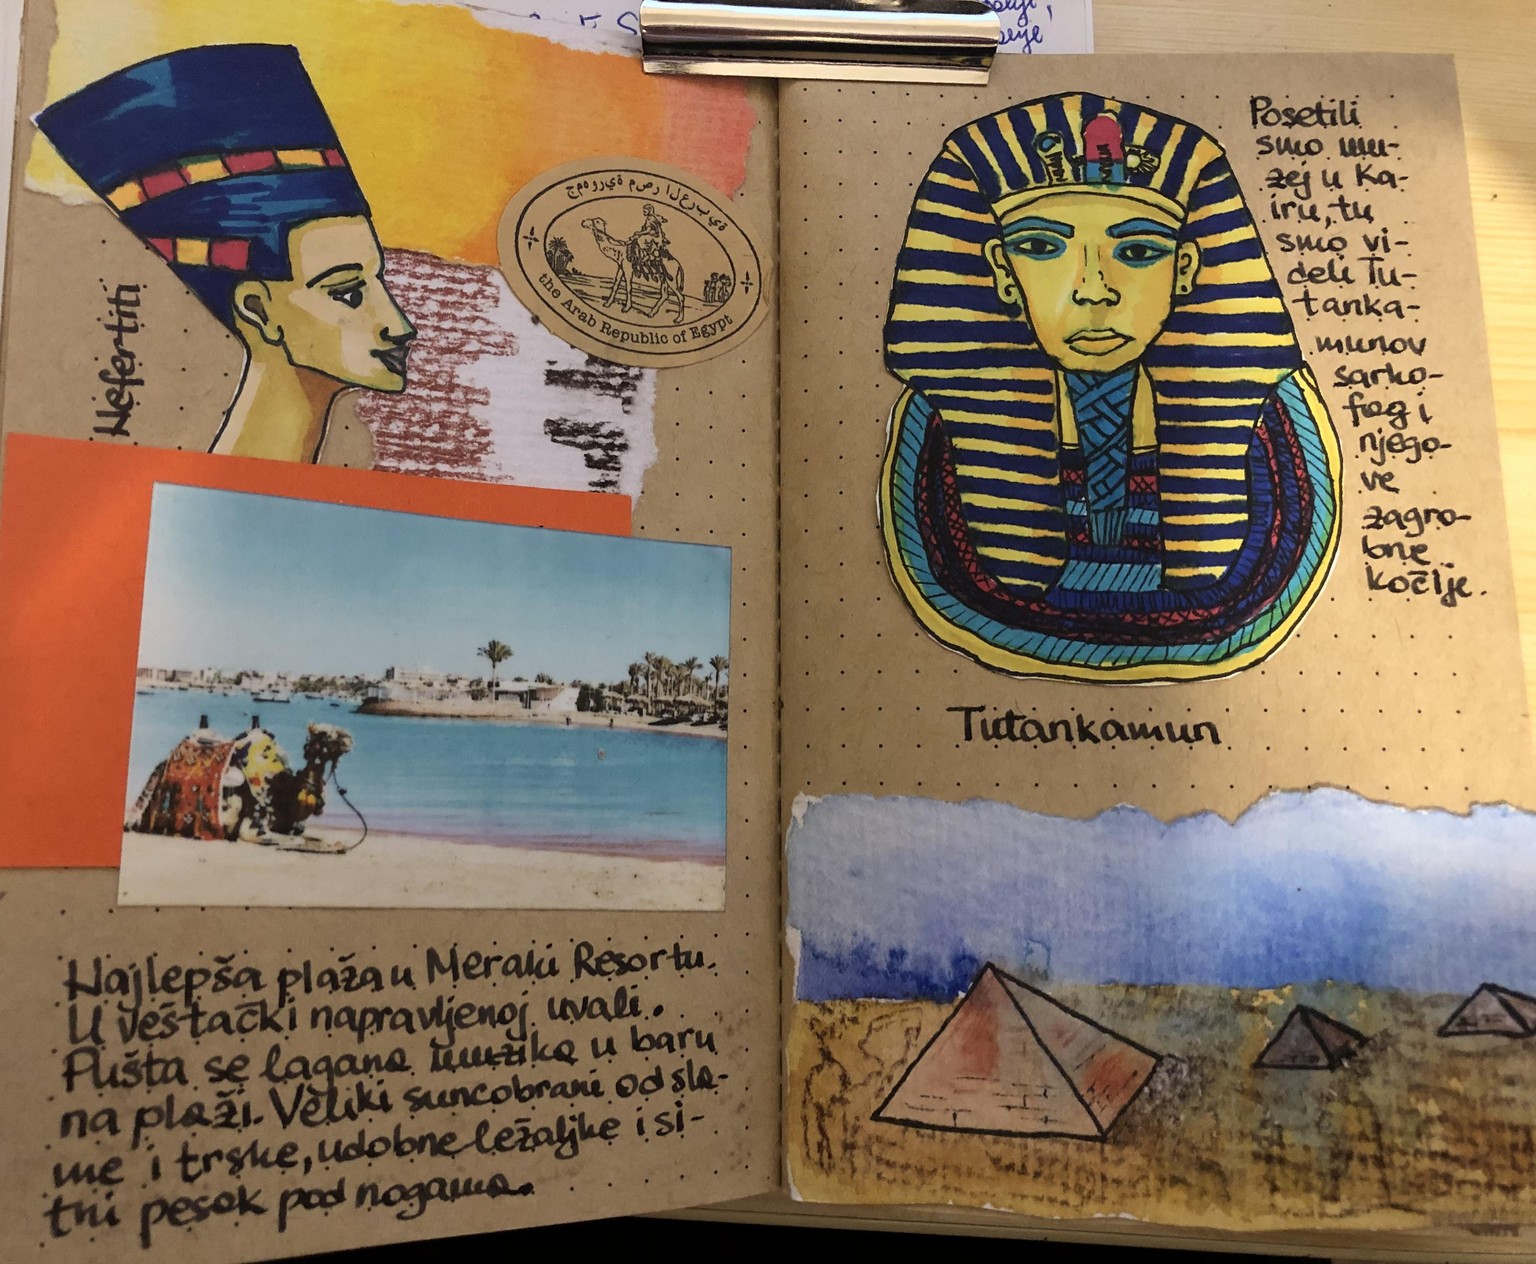 Nefertiti
جمهورية مصر العربية
the Arab Republic of Egypt
Najlepša plaža u Meraki Resortu.
U veštački napravljenoj uvali.
Pušta se lagana muzika u baru
na plaži. Veliki suncobrani od sla-
me i trske, udobne ležaljke i si-
tni pesak pod nogama.
Posetili
smo mu-
zej u Ka-
iru, tu
smo vi-
deli Tu-
tanka-
munov
sarko-
fag i
njego-
ve
zagro-
bne
kočije.
Tutankamun